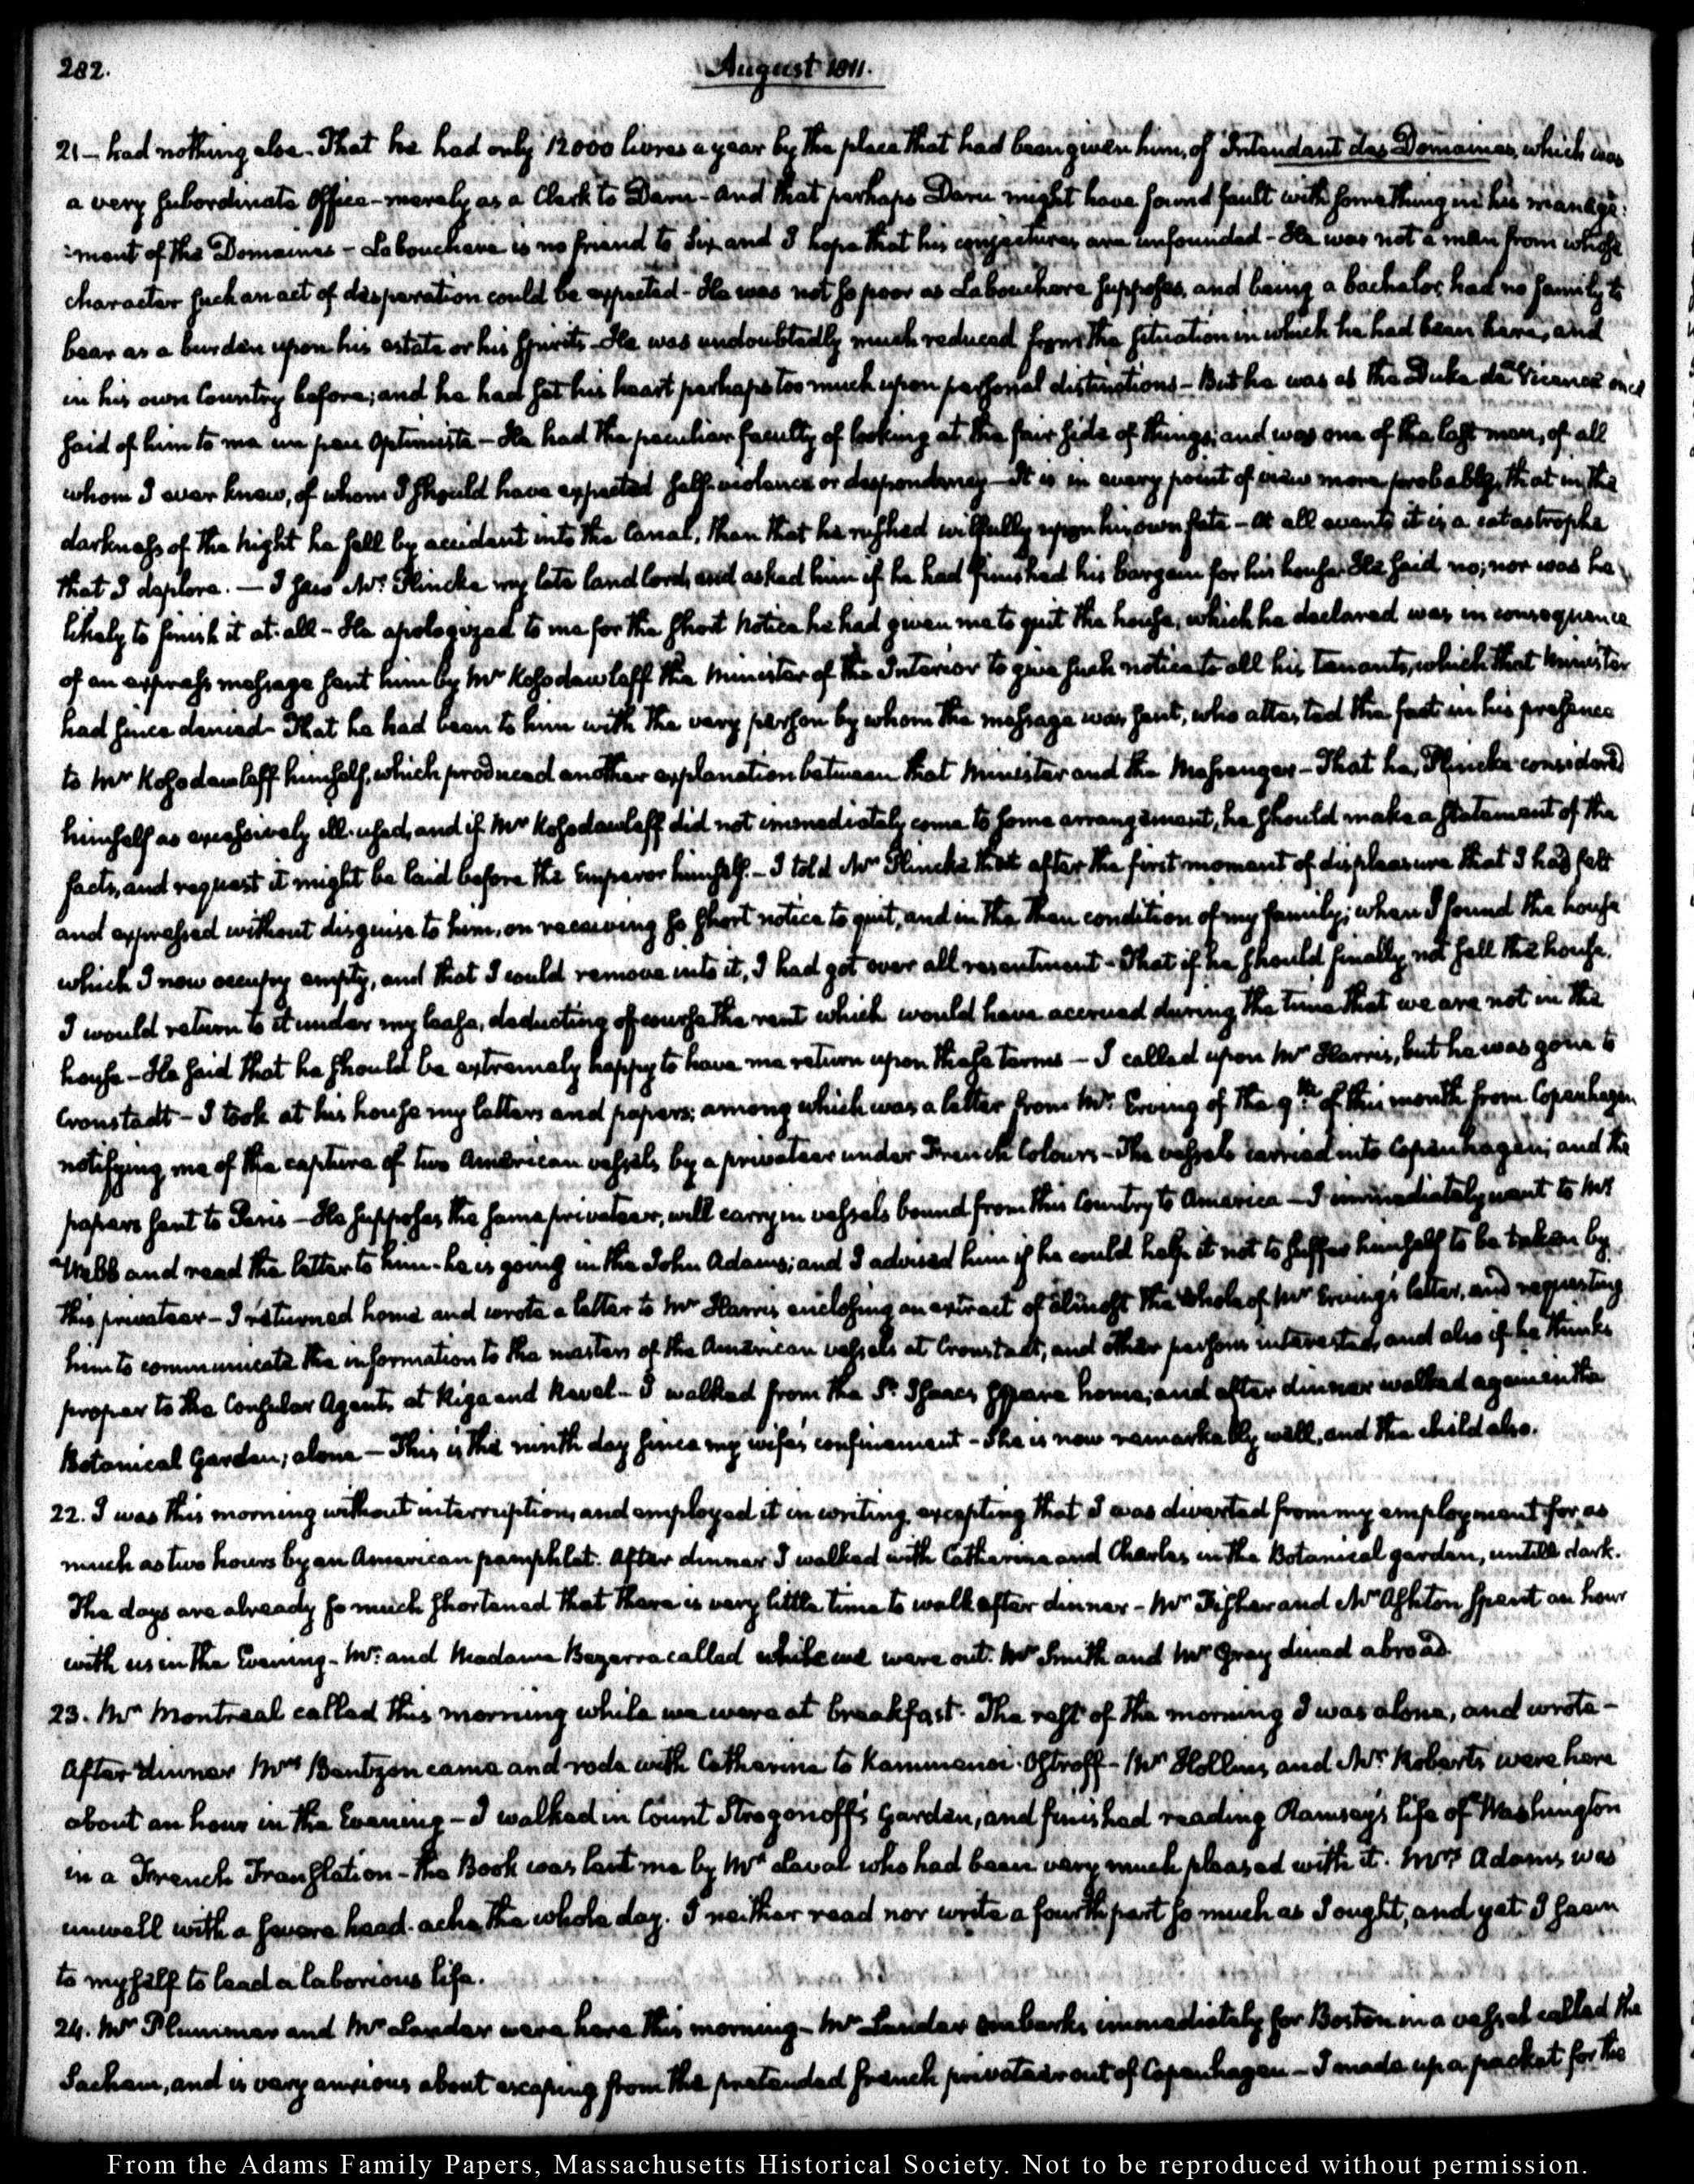 282.
August 1811.
21 – had nothing else. That he had only 12000 livres a year by the place that had been given him, of Intendant des Domaines, which was
a very subordinate Office – merely as a Clerk to Daru – and that perhaps Daru might have found fault with something in his manage:
:ment of the Domaines – Labouchere is no friend to Six, and I hope that his conjectures are unfounded – He was not a man from whose
character such an act of desperation could be expected – He was not so poor as Labouchere supposes, and being a bachelor, had no family to
bear as a burden upon his estate or his spirits – He was undoubtedly much reduced from the situation in which he had been here, and
in his own Country before; and he had set his heart perhaps too much upon personal distinctions – But he was as the Duke de Vicence once
said of him to me un peu Optimiste – He had the peculiar faculty of looking at the fair side of things; and was one of the last men, of all
whom I ever knew, of whom I should have expected self-violence or despondency – It is in every point of view more probable, that in the
darkness of the night he fell by accident into the Canal, than that he rushed wilfully upon his own fate – At all events it is a catastrophe
that I deplore. — I saw Mr. Plincke my late landlord, and asked him if he had finished his bargain for his house. He said no; nor was he
likely to finish it at all – He apologized to me for the short notice he had given me to quit the house, which he declared was in consequence
of an express message sent him by Mr Kosodawleff the Minister of the Interior to give such notice to all his tenants, which that Minister
had since denied – That he had been to him with the very person by whom the message was sent, who attested the fact in his presence
to Mr Kosodawleff himself, which produced another explanation between that Minister and the Messenger – That he, Plincke considered
himself as excessively ill-used, and if Mr Kosodawleff did not immediately come to some arrangement, he should make a statement of the
facts, and request it might be laid before the Emperor himself. – I told Mr Plincke that after the first moment of displeasure that I had felt
and expressed without disguise to him, on receiving so short notice to quit, and in the then condition of my family; when I found the house
which I now occupy empty, and that I could remove into it, I had got over all resentment – That if he should finally not sell the house,
I would return to it under my lease, deducting of course the rent which would have accrued during the time that we are not in the
house – He said that he should be extremely happy to have me return upon these terms – I called upon Mr Harris, but he was gone to
Cronstadt – I took at his house my letters and papers; among which was a letter from Mr. Erving of the 9th of this month from Copenhagen
notifying me of the capture of two American vessels, by a privateer under French Colours – The vessels carried into Copenhagen; and the
papers sent to Paris – He supposes the same privateer, will carry in vessels bound from this Country to America – I immediately went to Mr
Webb and read the letter to him – he is going in the John Adams; and I advised him if he could help it not to suffer himself to be taken by
this privateer – I returned home and wrote a letter to Mr Harris enclosing an extract of almost the whole of Mr Erving's letter, and requesting
him to communicate the information to the masters of the American vessels at Cronstadt, and other persons interested, and also if he thinks
proper to the Consular Agents at Riga and Revel – I walked from the St. Isaacs Square home; and after dinner walked again in the
Botanical Garden; alone – This is the ninth day since my wife's confinement – She is now remarkably well, and the child also.
22. I was this morning without interruption, and employed it in writing, excepting that I was diverted from my employment for as
much as two hours by an American pamphlet. After dinner I walked with Catherine and Charles in the Botanical garden, untill dark.
The days are already so much shortened that there is very little time to walk after dinner – Mr Fisher and Mr Ashton spent an hour
with us in the Evening – Mr. and Madame Bezerra called while we were out. Mr Smith and Mr Gray dined abroad.
23. Mr Montreal called this morning while we were at breakfast. The rest of the morning I was alone, and wrote –
After dinner Mrs Bentzon came and rode with Catherine to Kammenoi-Ostroff – Mr Hollins and Mr. Roberts were here
about an hour in the Evening – I walked in Count Strogonoff's Garden, and finished reading Ramsay's life of Washington
in a French Translation – The Book was lent me by Mr Laval who had been very much pleased with it. Mrs Adams was
unwell with a severe head-ache the whole day. I neither read nor write a fourth part so much as I ought, and yet I seem
to myself to lead a laborious life.
24. Mr Plummer and Mr Lander were here this morning – Mr Lander embarks immediately for Boston in a vessel called the
Sachem, and is very anxious about escaping from the pretended french privateer out of Copenhagen – I made up a packet for the
From the Adams Family Papers, Massachusetts Historical Society. Not to be reproduced without permission.